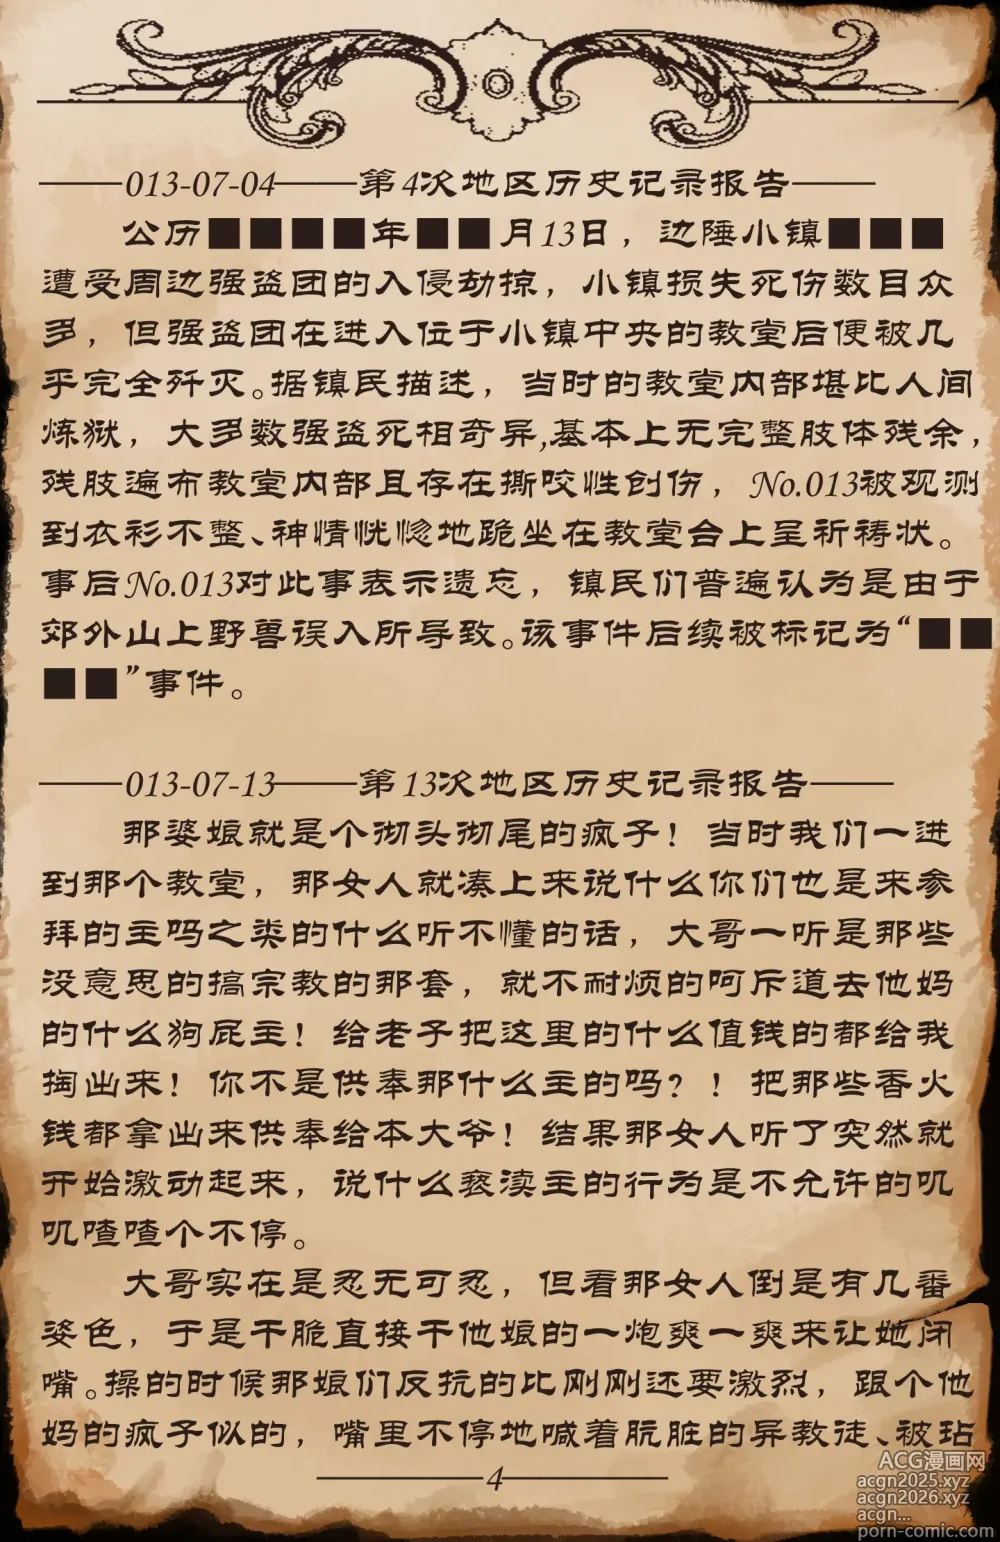 ——013-07-04——第4次地区历史记录报告——
公历■■■■年■■月13日，边陲小镇■■■
遭受周边强盗团的入侵劫掠，小镇损失死伤数目众
多，但强盗团在进入位于小镇中央的教堂后便被几
乎完全歼灭。据镇民描述，当时的教堂内部堪比人间
炼狱，大多数强盗死相奇异,基本上无完整肢体残余，
残肢遍布教堂内部且存在撕咬性创伤，No.013被观测
到衣衫不整、神情恍惚地跪坐在教堂台上呈祈祷状。
事后No.013对此事表示遗忘，镇民们普遍认为是由于
郊外山上野兽误入所导致。该事件后续被标记为“■■
■■”事件。
——013-07-13——第13次地区历史记录报告——
那婆娘就是个彻头彻尾的疯子！当时我们一进
到那个教堂，那女人就凑上来说什么你们也是来参
拜的主吗之类的什么听不懂的话，大哥一听是那些
没意思的搞宗教的那套，就不耐烦的呵斥道去他妈
的什么狗屁主！给老子把这里的什么值钱的都给我
掏出来！你不是供奉那什么主的吗？！把那些香火
钱都拿出来供奉给本大爷！结果那女人听了突然就
开始激动起来，说什么亵渎主的行为是不允许的叽
叽喳喳个不停。
大哥实在是忍无可忍，但看那女人倒是有几番
姿色，于是干脆直接干他娘的一炮爽一爽来让她闭
嘴。操的时候那娘们反抗的比刚刚还要激烈，跟个他
妈的疯子似的，嘴里不停地喊着肮脏的异教徒、被玷
4
ACG漫画网
acgn2025.xyz
acgn2026.xyz
acgn...
porn-comic.com